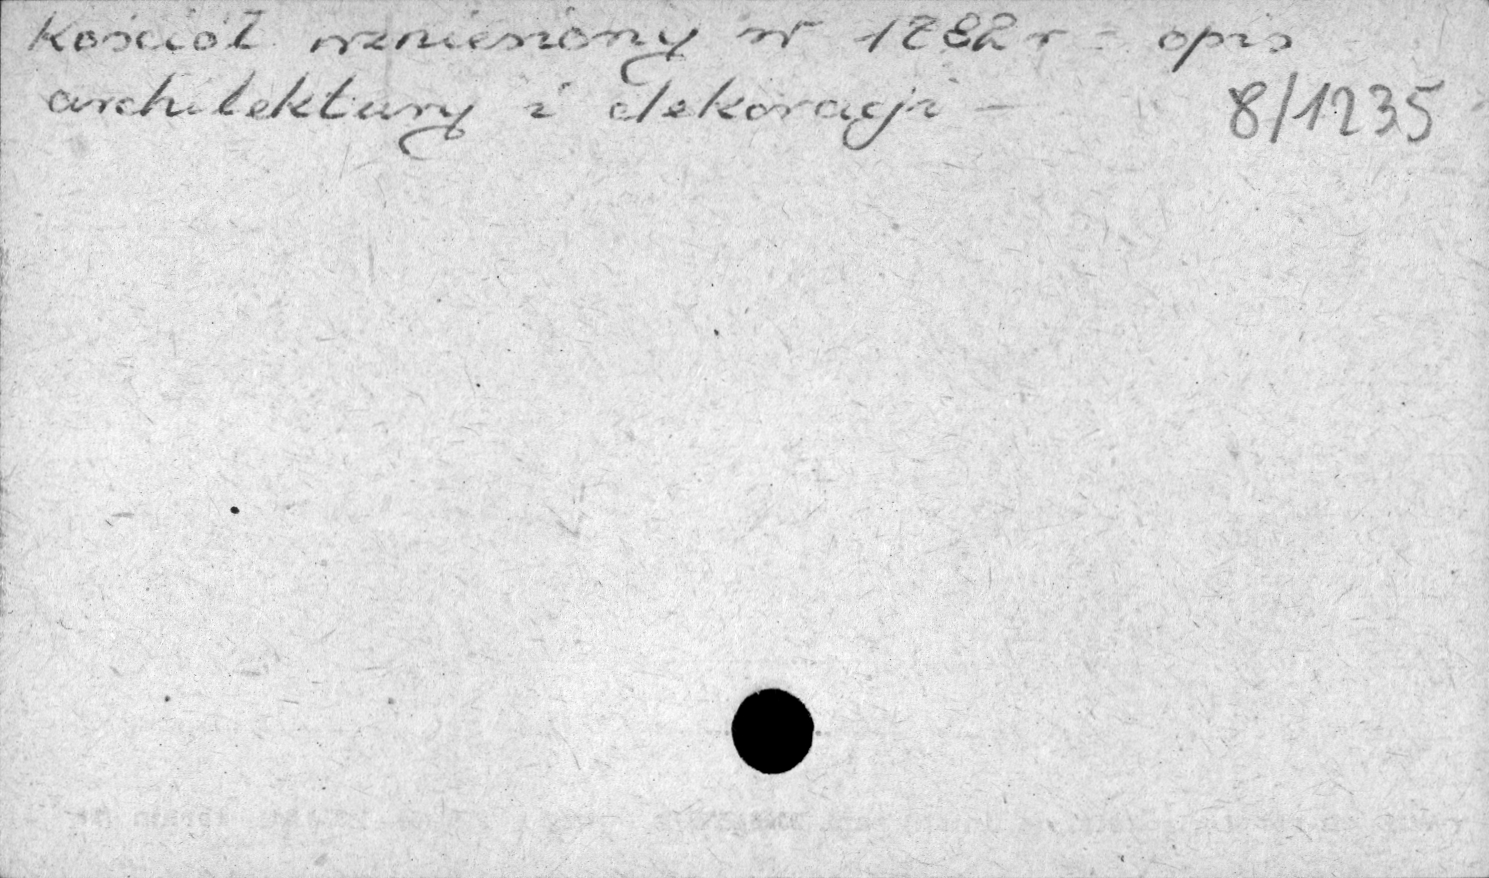 Kościół wzniesiony w 1782 r - opis
architektury i dekoracji - 8/1235